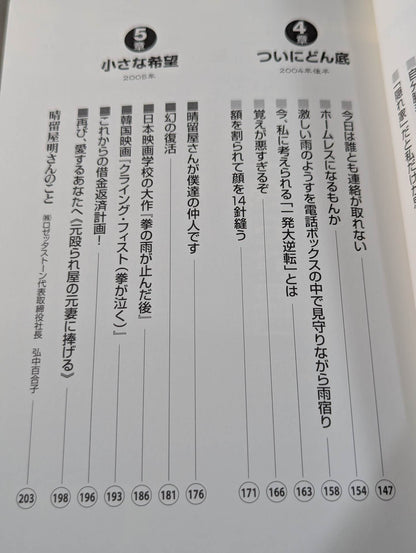 4章
ついにどん底
2004年後半
今日は誰とも連絡が取れない 147
ホームレスになるもんか 154
激しい雨のようすを電話ボックスの中で見守りながら雨宿り 158
今、私に考えられる「一発大逆転」とは 163
覚えが悪すぎるぞ 166
額を割られて顔を14針縫う 171
5章
小さな希望
2005年
晴留屋さんが僕達の仲人です 176
幻の復活 181
日本映画学校の大作『拳の雨が止んだ後』 186
韓国映画『クライング・フィスト（拳が泣く）』 193
これからの借金返済計画！ 196
再び、愛するあなたへ《元殴られ屋の元妻に捧げる》 198
晴留屋明さんのこと ㈱ロゼッタストーン代表取締役社長 弘中百合子 203